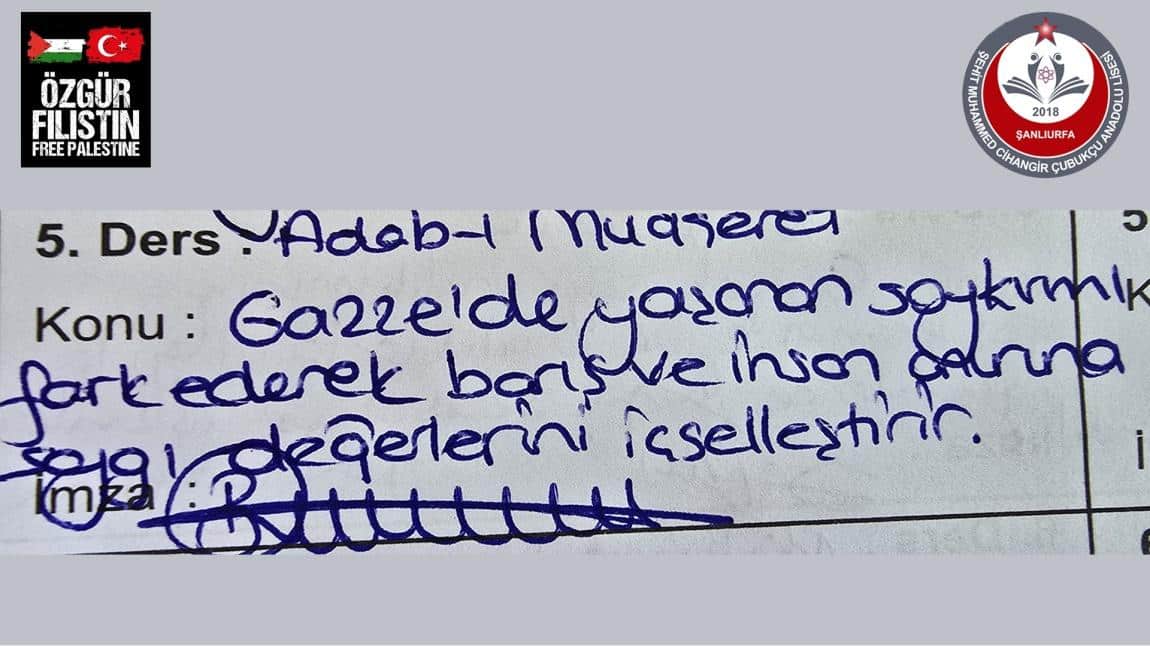 ÖZGÜR
FİLİSTİN
FREE PALESTINE
ŞEHİT MUHAMMED CİHANGİR ÇUBUKÇU ANADOLU LİSESİ
2018
ŞANLIURFA
5. Ders : Adab-ı Muaşeret
Konu : Gazze'de yaşanan soykırımı
fark ederek barış ve insan onuruna
saygı değerlerini içselleştirir.
İmza :